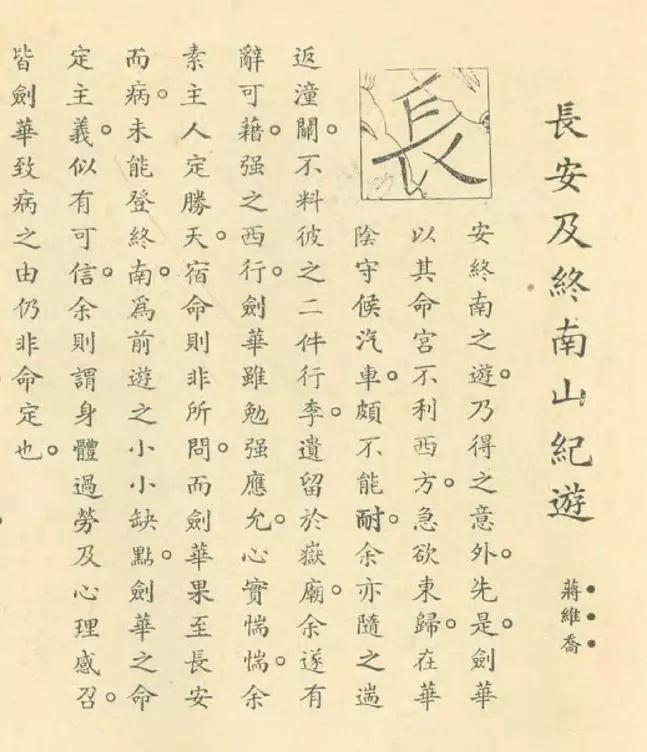 長安及終南山紀遊
蔣維喬
長
安終南之遊。乃得之意外。先是。劍華
以其命宮不利西方。急欲東歸。在華
陰守候汽車。頗不能耐。余亦隨之遄
返潼關。不料彼之二件行李。遺留於嶽廟。余遂有
辭可藉。强之西行。劍華雖勉强應允。心實惴惴。余
素主人定勝天。宿命則非所問。而劍華果至長安
而病。未能登終南。爲前遊之小小缺點。劍華之命
定主義。似有可信。余則謂身體過勞及心理感召。
皆劍華致病之由仍非命定也。